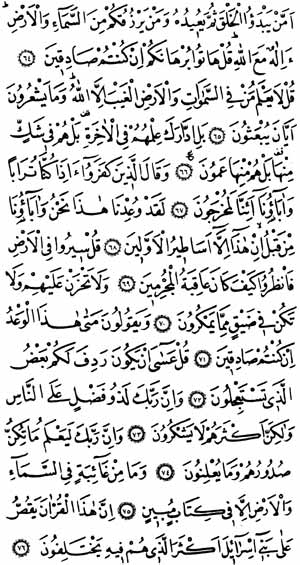 اَمَّنْ يَبْدَؤُا الْخَلْقَ ثُمَّ يُعِيدُهُ وَمَنْ يَرْزُقُكُمْ مِنَ السَّمَاءِ وَالْاَرْضِ
ءَاِلٰهٌ مَعَ اللّٰهِ قُلْ هَاتُوا بُرْهَانَكُمْ اِنْ كُنْتُمْ صَادِقِينَ ٦٤
قُلْ لَا يَعْلَمُ مَنْ فِي السَّمٰوَاتِ وَالْاَرْضِ الْغَيْبَ اِلَّا اللّٰهُ وَمَا يَشْعُرُونَ
اَيَّانَ يُبْعَثُونَ ٦٥ بَلِ ادَّارَكَ عِلْمُهُمْ فِي الْاٰخِرَةِ بَلْ هُمْ فِي شَكٍّ
مِنْهَا بَلْ هُمْ مِنْهَا عَمُونَ ٦٦ وَقَالَ الَّذِينَ كَفَرُوا ءَاِذَا كُنَّا تُرَابًا
وَاٰبَاؤُنَا اَئِنَّا لَمُخْرَجُونَ ٦٧ لَقَدْ وُعِدْنَا هٰذَا نَحْنُ وَاٰبَاؤُنَا
مِنْ قَبْلُ اِنْ هٰذَا اِلَّا اَسَاطِيرُ الْاَوَّلِينَ ٦٨ قُلْ سِيرُوا فِي الْاَرْضِ
فَانْظُرُوا كَيْفَ كَانَ عَاقِبَةُ الْمُجْرِمِينَ ٦٩ وَلَا تَحْزَنْ عَلَيْهِمْ وَلَا
تَكُنْ فِي ضَيْقٍ مِمَّا يَمْكُرُونَ ٧٠ وَيَقُولُونَ مَتٰى هٰذَا الْوَعْدُ
اِنْ كُنْتُمْ صَادِقِينَ ٧١ قُلْ عَسٰى اَنْ يَكُونَ رَدِفَ لَكُمْ بَعْضُ
الَّذِي تَسْتَعْجِلُونَ ٧٢ وَاِنَّ رَبَّكَ لَذُو فَضْلٍ عَلَى النَّاسِ
وَلٰكِنَّ اَكْثَرَهُمْ لَا يَشْكُرُونَ ٧٣ وَاِنَّ رَبَّكَ لَيَعْلَمُ مَا تُكِنُّ
صُدُورُهُمْ وَمَا يُعْلِنُونَ ٧٤ وَمَا مِنْ غَائِبَةٍ فِي السَّمَاءِ
وَالْاَرْضِ اِلَّا فِي كِتَابٍ مُبِينٍ ٧٥ اِنَّ هٰذَا الْقُرْاٰنَ يَقُصُّ
عَلٰى بَنِي اِسْرَائِيلَ اَكْثَرَ الَّذِي هُمْ فِيهِ يَخْتَلِفُونَ ٧٦